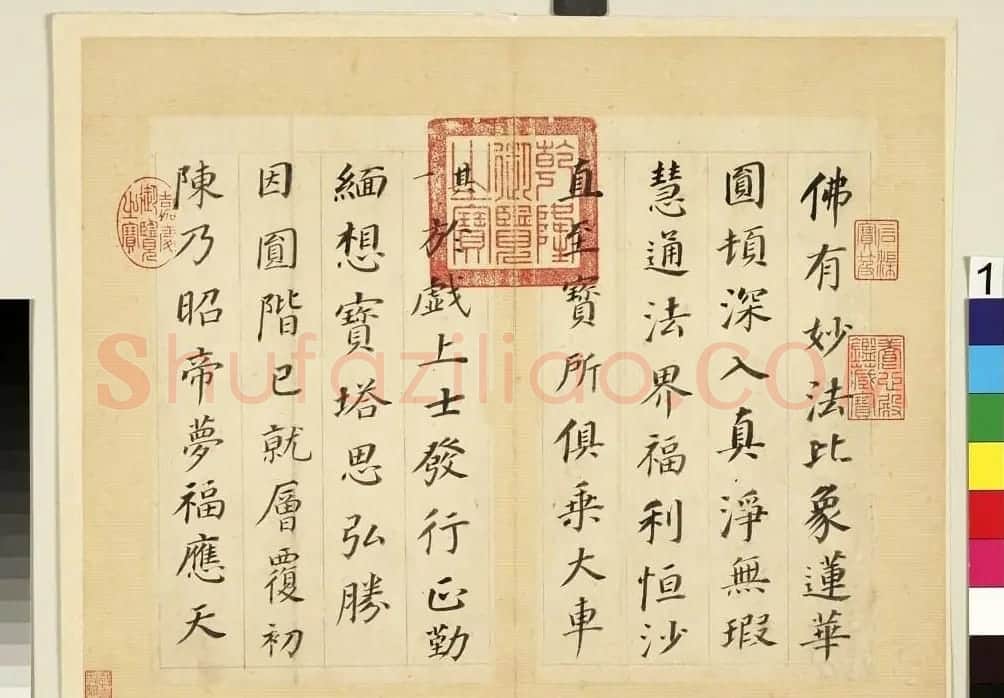 佛有妙法比象蓮華
圓頓深入真淨無瑕
慧通法界福利恒沙
直至寶所俱乗大車
其一於戲上士發行正勤
緬想寶塔思弘勝
因圓階已就層覆初
陳乃昭帝夢福應天
石渠寶笈
養心殿鑑藏寶
乾隆御覽之寶
嘉慶御覽之寶
Shufaziliao.CO
1